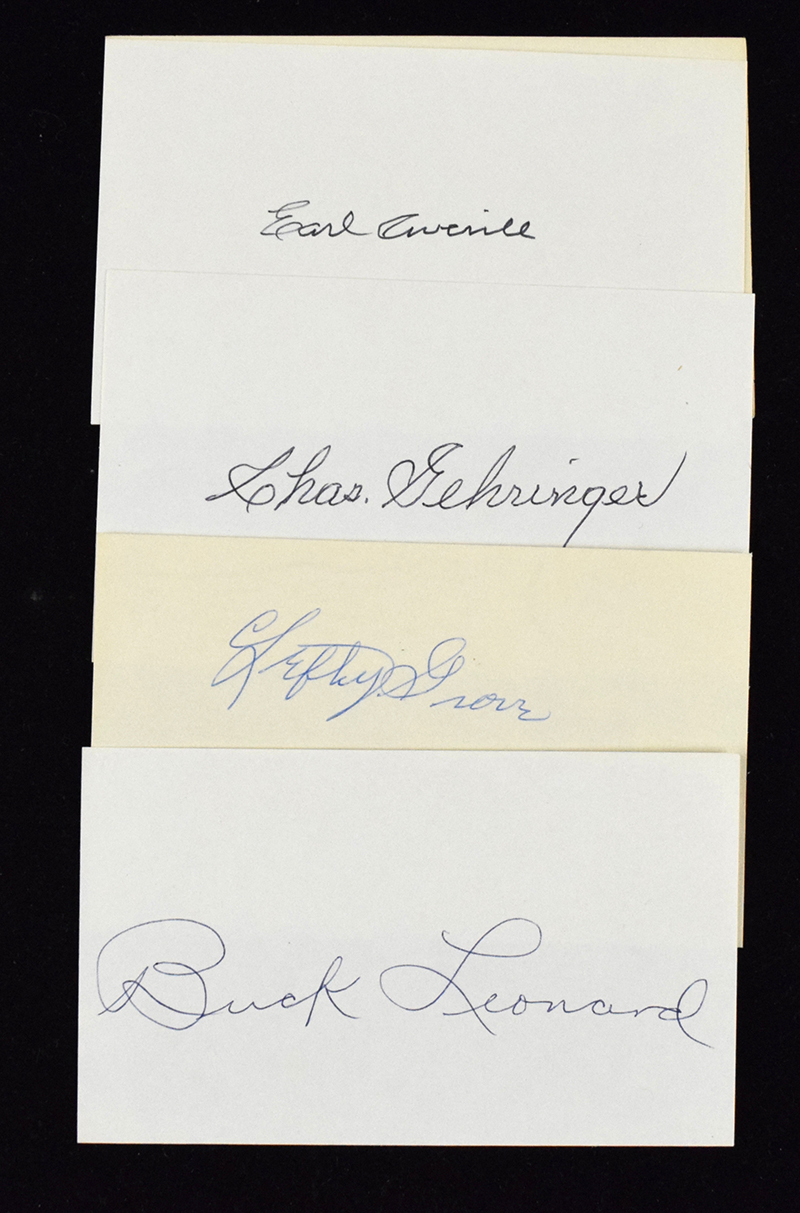 Earl Averill
Chas. Gehringer
Lefty Grove
Buck Leonard